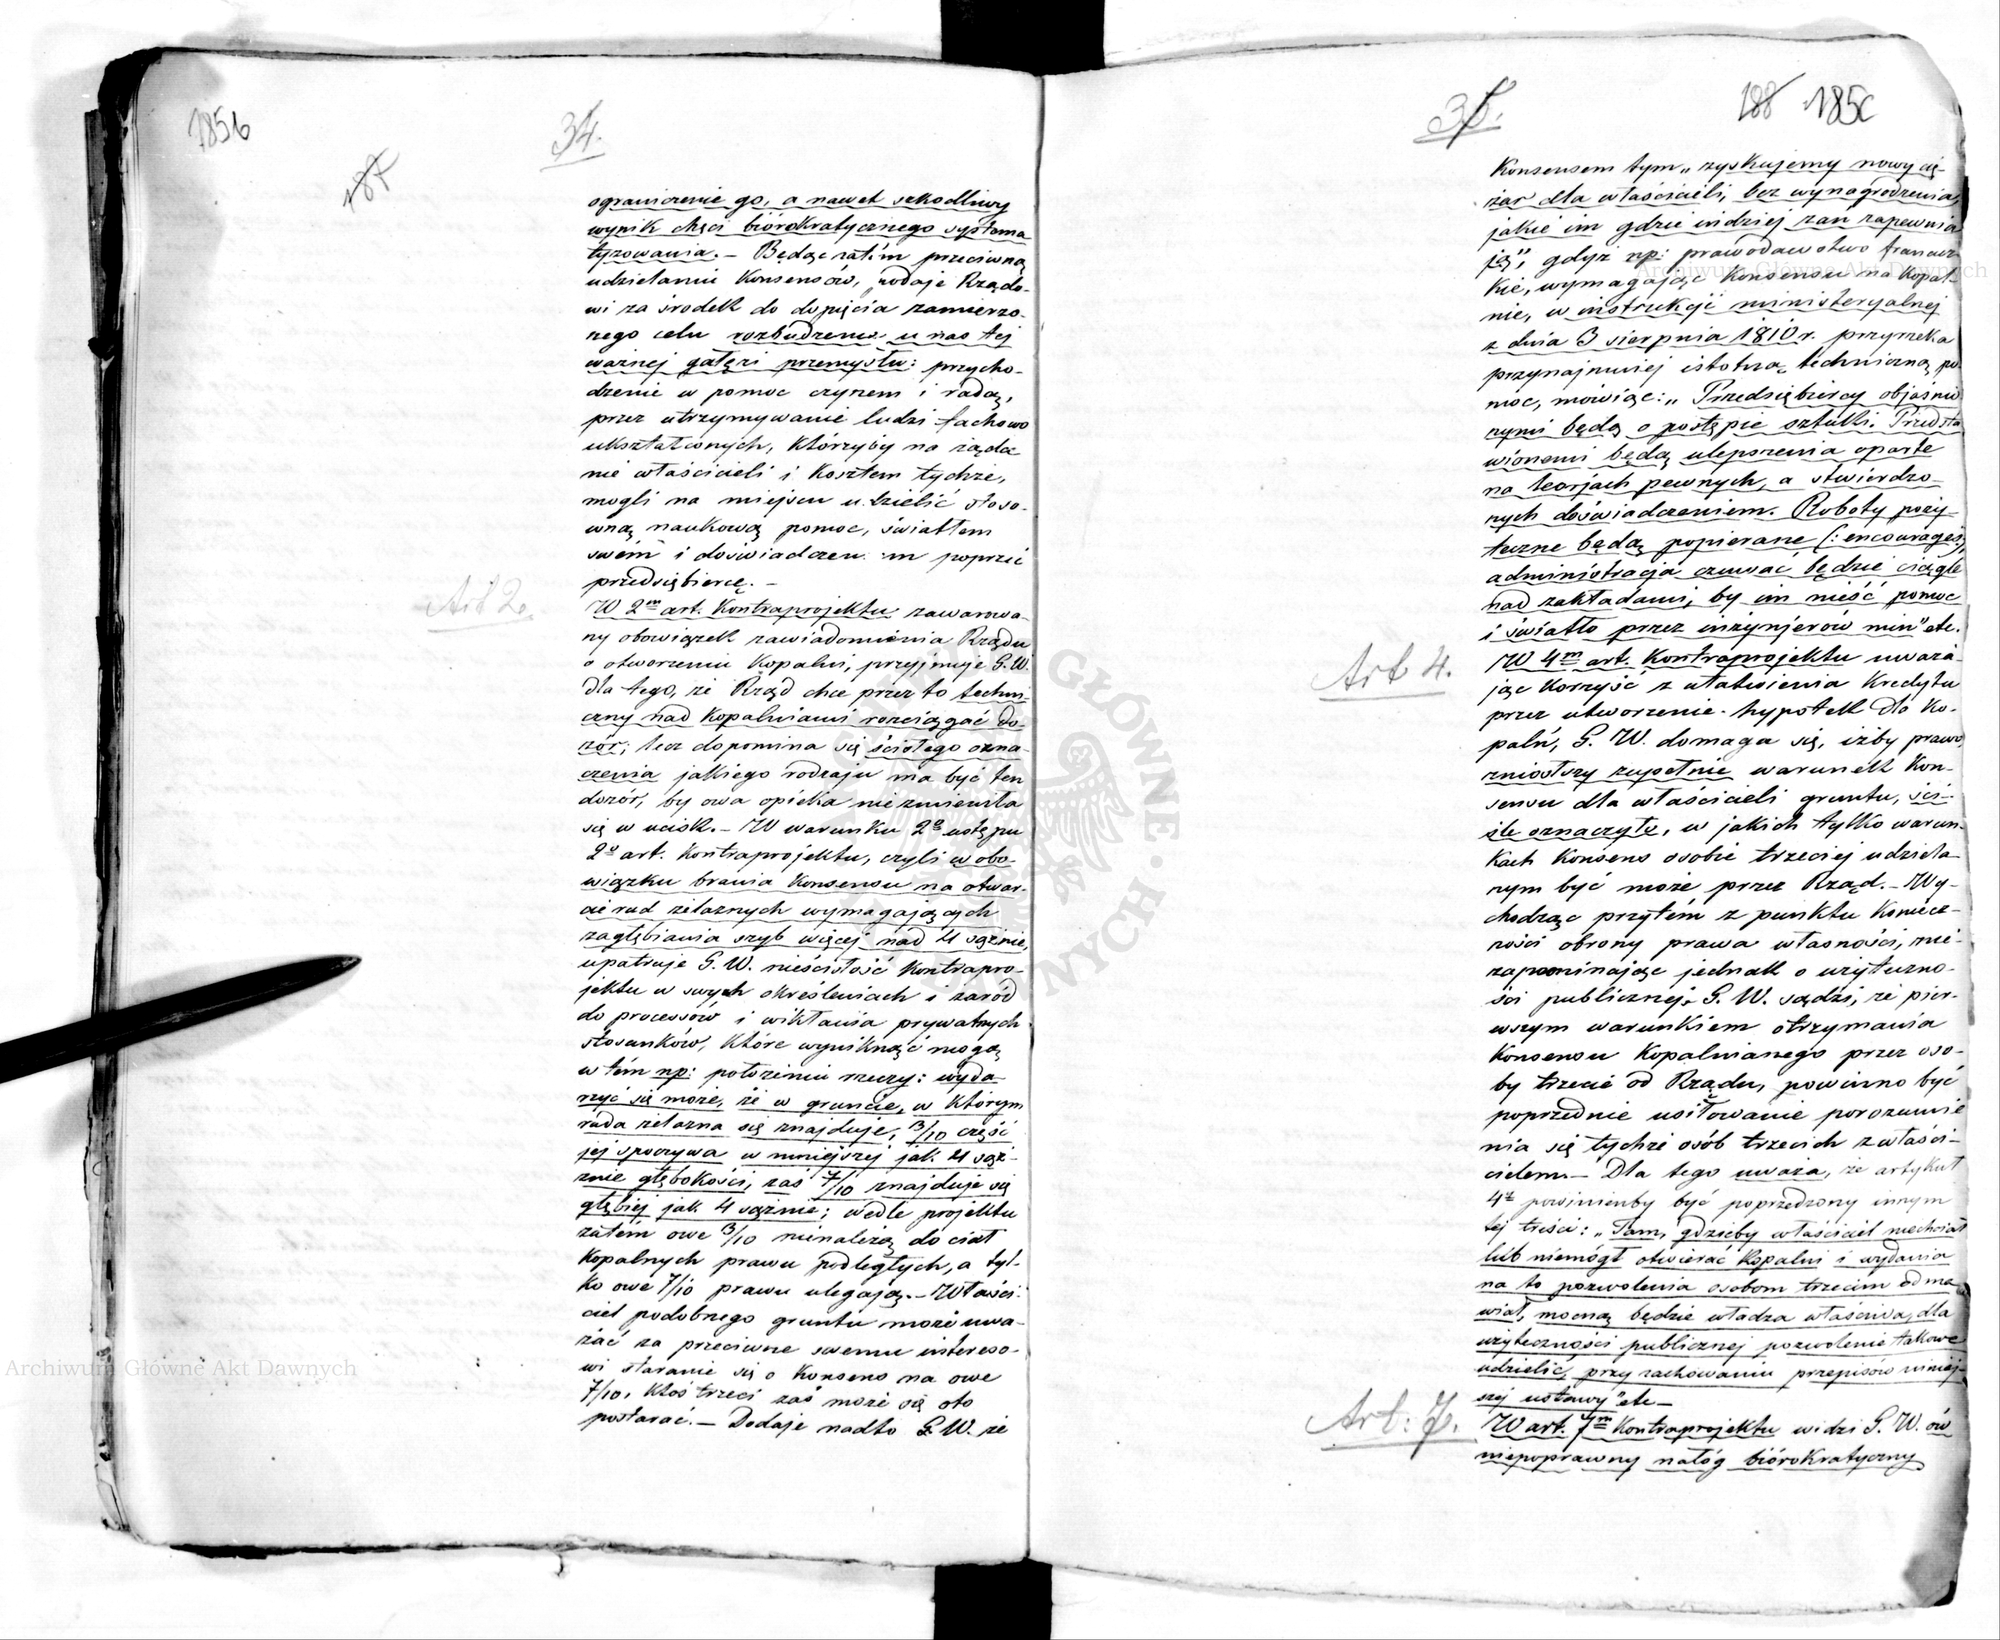 185b
34.
187
ograniczenie go, a nawet szkodliwy
wynik chęci biórokratycznego systema
tyzowania. – Będąc zatém przeciwną
udzielaniu Konsensów, podaje Rządo-
wi za środek do dopięcia zamierzo-
nego celu rozbudzenia u nas tej
ważnej gałęzi przemysłu: przycho-
dzenie w pomoc czynem i radą,
przez utrzymywanie ludzi fachowo
ukształconych, którzyby na żąda
nie właścicieli i kosztem tychże,
mogli na miejscu udzielić stoso-
wną naukową pomoc, światłem
swém i doświadczeniem poprzeć
przedsiębiercę. –
Art 2.
W 2m art. Kontraprojektu zawarowa-
ny obowiązek zawiadomienia Rządu
o otworzeniu Kopalni, przyjmuje G.W.
dla tego, że Rząd chce przez to techni-
czny nad Kopalniami rozciągać do-
zór; lecz dopomina się ścisłego ozna-
czenia jakiego rodzaju ma być ten
dozór, by owa opieka nie zmieniła
się w ucisk. – W warunku 2o ustępu
2o art. Kontraprojektu, czyli w obo-
wiązku brania Konsensu na otwar-
cie rud żelaznych wymagających
zagłębiania szyb więcej nad 4 sążnie,
upatruje G. W. nieścisłość Kontrapro-
jektu w swych określeniach i zaród
do processów i wikłania prywatnych
stosunków, które wyniknąć mogą
w tém np: położeniu rzeczy: wyda-
rzyć się może, że w gruncie, w którym
ruda żelazna się znajduje, 3/10 część
jej spoczywa w mniejszej jak 4 sąż-
znie głębokości, zaś 7/10 znajduje się
głębiej jak 4 sążnie; wedle projektu
zatém owe 3/10 nienależą do ciał
Kopalnych prawu podległych, a tyl-
ko owe 7/10 prawu ulegają. – Właści-
ciel podobnego gruntu może uwa-
żać za przeciwne swemu intereso-
wi staranie się o Konsens na owe
7/10, ktoś trzeci zaś może się oto
postarać. – Dodaje nadto G.W. że
35.
188 185c
Konsensem tym „zyskujemy nowy cię-
żar dla właścicieli, bez wynagrodzenia,
jakie im gdzie indziej zań zapewnia
ją", gdyż np: prawodawstwo francuz-
kie, wymagając Konsensu na Kopal-
nie, w instrukcji ministeryalnej
z dnia 3 sierpnia 1810 r. przyrzeka
przynajmniej istotną techniczną po-
moc, mówiąc: „Przedsiębiercy objaśnie
nymi będą o postępie sztuki. Przedsta
wionemi będą ulepszenia oparte
na teorjach pewnych, a stwierdzo-
nych doświadczeniem. Roboty poży-
teczne będą popierane (: encouragés:),
administracja czuwać będzie ciągle
nad zakładami, by im nieść pomoc
i światło przez inżynjerów min" etc.
Art 4.
W 4m art. Kontraprojektu uważa-
jąc korzyść z ułatwienia Kredytu
przez utworzenie hypotek dla Ko-
palń, G. W. domaga się, iżby prawo,
zniósłszy zupełnie warunek Kon-
sensu dla właścicieli gruntu, ści-
śle oznaczyło, w jakich tylko warun-
kach Konsens osobie trzeciej udziela-
nym być może przez Rząd. – Wy-
chodząc przytém z punktu Koniecz-
ności obrony prawa własności, nie-
zapominając jednak o użyteczno-
ści publicznej, G. W. sądzi, że pier-
wszym warunkiem otrzymania
Konsensu Kopalnianego przez oso-
by trzecie od Rządu, powinno być
poprzednie usiłowanie porozumie
nia się tychże osób trzecich z właści-
cielem. – Dla tego uważa, że artykuł
4ty powinienby być poprzedzony innym
tej treści: „Tam, gdzieby właściciel niechciał
lub niemógł otwierać Kopalni i wydania
na to pozwolenia osobom trzecim odma
wiał, mocną będzie władza właściwa, dla
użyteczności publicznej pozwolenie takowe
udzielić, przy zachowaniu przepisów niniej-
szej ustawy" etc –
Art: 7.
W art. 7m Kontraprojektu widzi G. W. ów
niepoprawny nałóg biórokratyczny
Archiwum Główne Akt Dawnych
Archiwum Główne Akt Dawnych